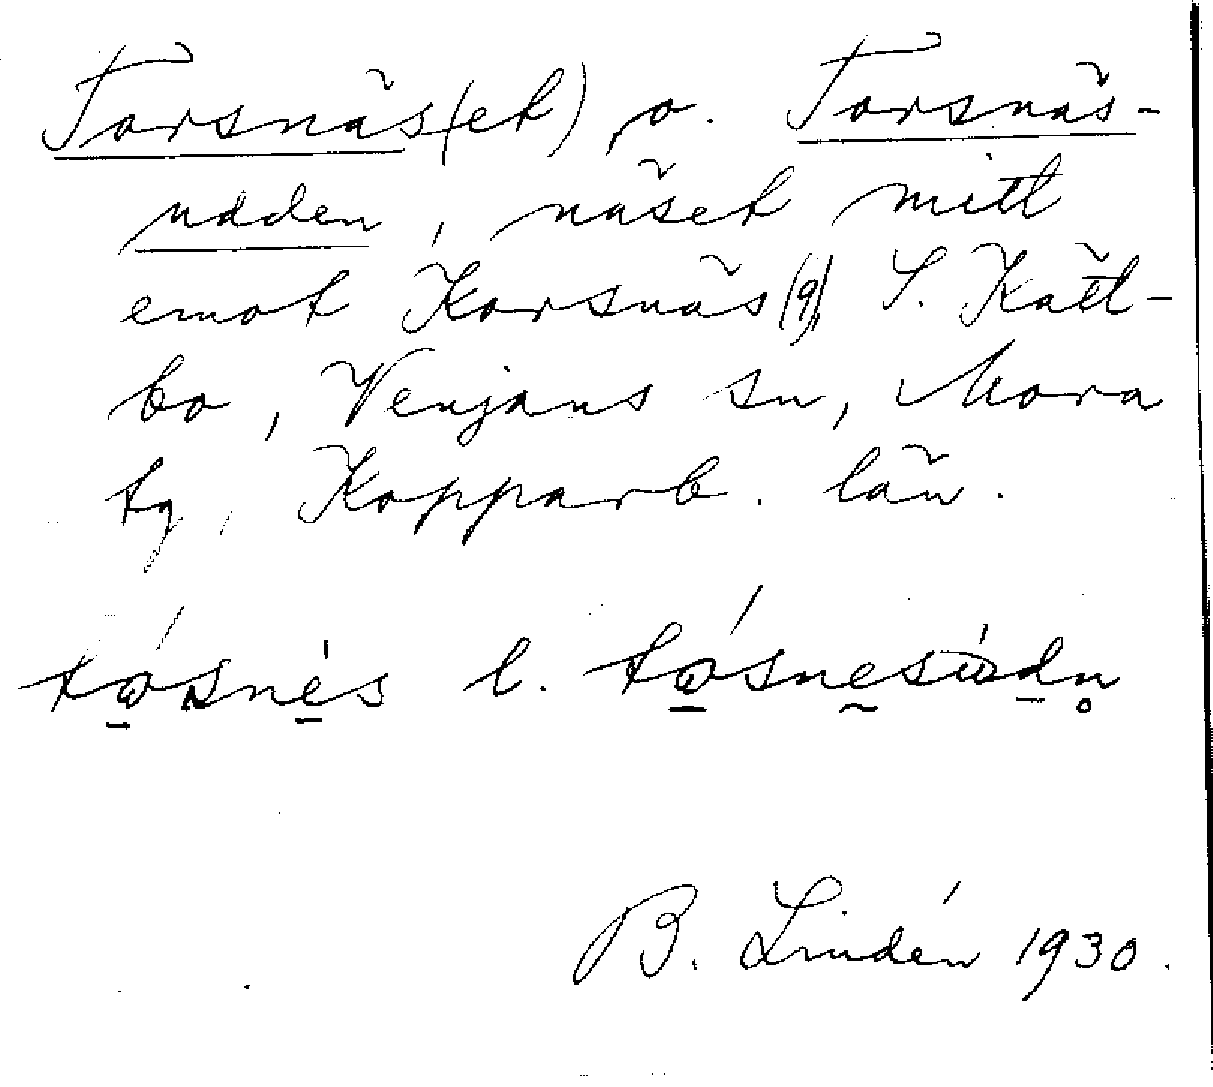 Torsnäs(et) o. Torsnäs-
udden, näset mitt
emot Korsnäs(9) S. Kätt-
bo, Venjans sn, Mora
tg, Kopparb. län.
B. Lindén 1930.